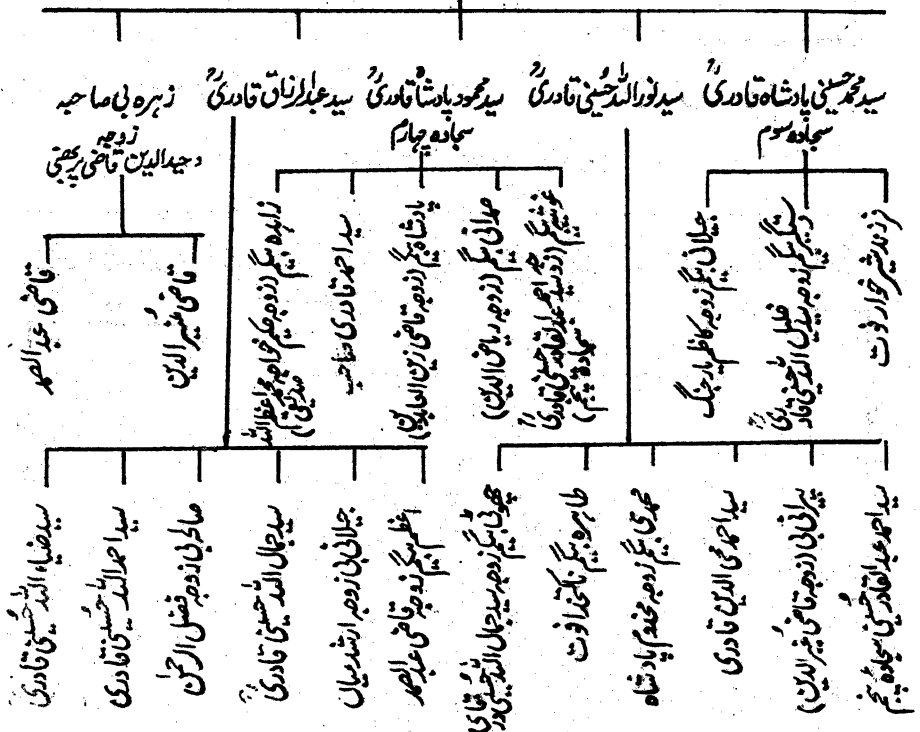 سید محمد حسینی پادشاہ قادریؒ
سجادہ سوم
سید نور اللہ حسینی قادریؒ
سید محمود پادشاہ قادریؒ
سجادہ چہارم
سید عبدالرزاق قادریؒ
زہرہ بی صاحبہ
زوجہ
وحیدالدین قاضی پربھنی
فرزند شیر خوار فوت
دستگیر بیگم زوجہ سید
خلیل اللہ حسینی قادریؒ
جیلانی بیگم زوجہ کاظم یار جنگ
غوثیہ بیگم
(زوجہ سید احمد عبدالقادر حسینی قادریؒ
سجادہ پنجم)
صمدانی بیگم (زوجہ ریاض الدین)
پادشاہ بیگم (زوجہ قاضی زین العابدین)
سید احمد قادری صاحب
زاہدہ بیگم (زوجہ حکیم خواجہ محمد اعظم اللہ
صدیقی)
قاضی منیر الدین
قاضی عبدالصمد
سید احمد عبدالقادر حسینی سجادہ پنجم
پیرانی بی (زوجہ قاضی منیر الدین)
سید احمد محی الدین قادری
محمدی بیگم زوجہ مخدوم پادشاہ
طاہرہ بیگم ناکتخدا فوت
چھوٹی بیگم زوجہ سید جمال اللہ حسینی قادری
اعظم بیگم زوجہ قاضی عبدالصمد
جیلانی بی زوجہ ارشد میاں
سید جمال اللہ حسینی قادریؒ
صالحہ بی زوجہ فضل الرحمٰن
سید احمد اللہ حسینی قادری
سید ضیاء اللہ حسینی قادری